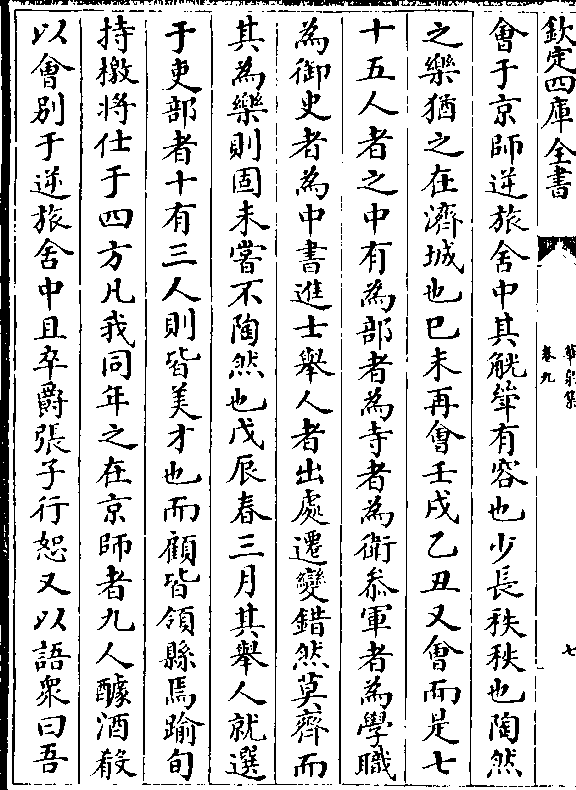 欽定四庫全書
華泉集
卷九
七
會于京師逆旅舍中其觥筭有容也少長秩秩也陶然
之樂猶之在濟城也巳未再會壬戌乙丑又會而是七
十五人者之中有為部者為寺者為衛叅軍者為學職
為御史者為中書進士舉人者出處遷變錯然莫齊而
其為樂則固未嘗不陶然也戊辰春三月其舉人就選
于吏部者十有三人則皆美才也而顧皆領縣焉踰旬
持檄将仕于四方凡我同年之在京師者九人醵酒殽
以會别于逆旅舍中且卒爵張子行恕又以語衆曰吾